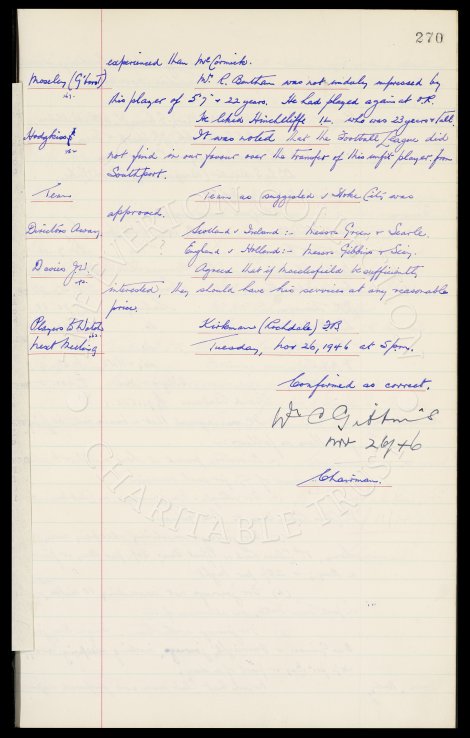 270
experienced than McCormick.
Moseley (G'boro) Mr. R. Bentham was not unduly impressed by
167.
this player of 5'7" + 22 years. He had played again at O.R.
He liked Hinchcliffe IL, who was 23 years + tall.
Hodgkiss It was noted that the Football League did
not find in our favour over the transfer of this unfit player from
Southport.
Team Team as suggested v Stoke City was
approved.
Directors Away. Scotland v Ireland :- Messrs Green + Searle
England v Holland :- Messrs Gibbins +
Davies J.W. Agreed that if Macclesfield be sufficiently
interested, they should have his services at any reasonable
price.
Players to Watch Kirkman (Rochdale) FB
Next Meeting Tuesday, Nov 26, 1946 at 5pm.
Confirmed as correct.
Wm C Gibbins
Nov 26/46
Chairman.
EVERTON COLLECTION
CHARITABLE TRUST